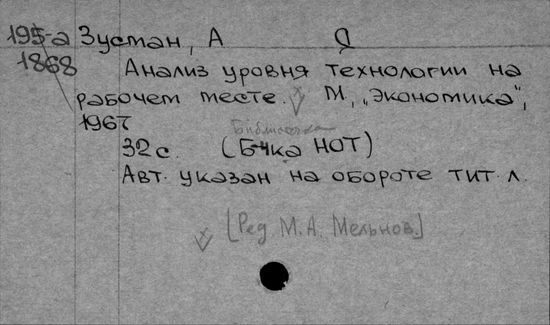 195-а Зусман, А Я
1868 Анализ уровня технологии на
рабочем месте. М, „Экономика",
1967
Библиотечка
32 с. (Б-чка НОТ)
Авт. указан на обороте тит. л.
[Ред М.А.